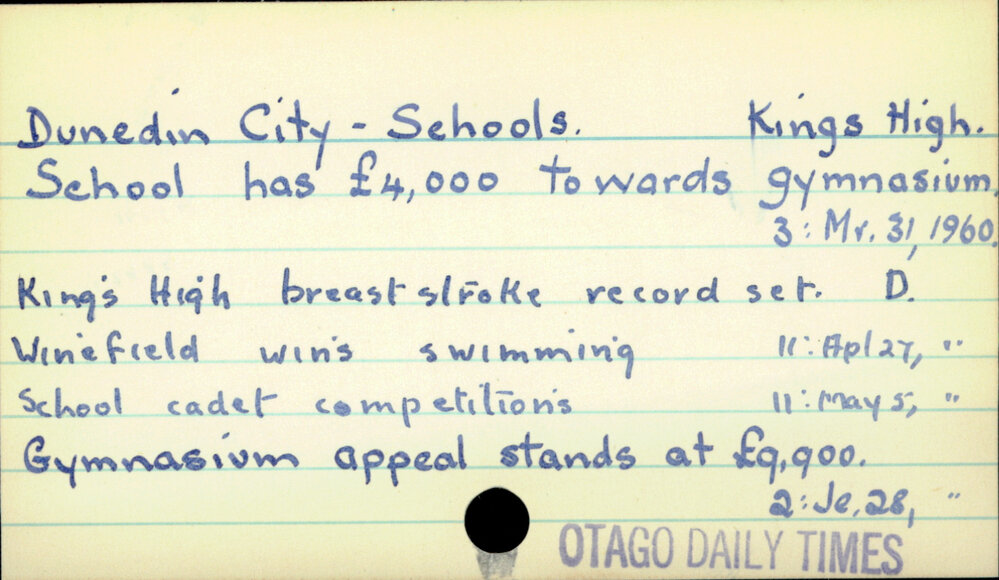 Dunedin City - Schools. Kings High.
School has £4,000 towards gymnasium.
3: Mr. 31, 1960.
King's High breast stroke record set. D.
Winefield wins swimming 11: Apl 27, "
School cadet competitions 11: May 5, "
Gymnasium appeal stands at £9,900.
2: Je. 28, "
OTAGO DAILY TIMES